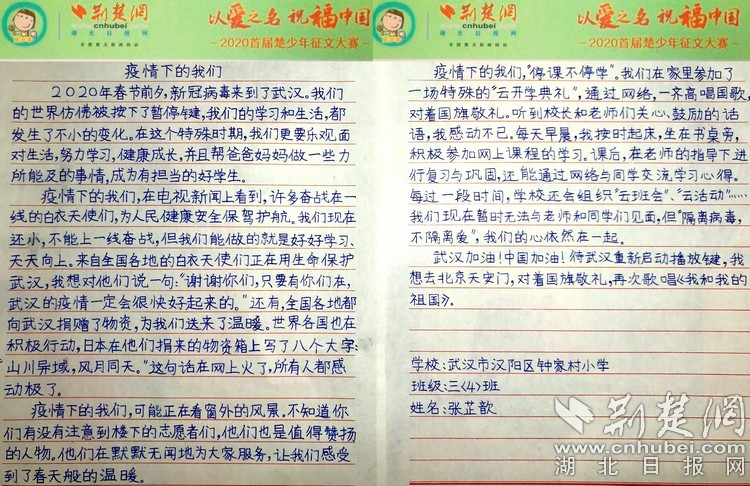 荆楚网
www.cnhubei.com
湖北日报网
全国重点新闻网站
以爱之名 祝福中国
-2020首届楚少年征文大赛-
疫情下的我们
2020年春节前夕,新冠病毒来到了武汉。我们
的世界仿佛被按下了暂停键,我们的学习和生活,都
发生了不小的变化。在这个特殊时期,我们更要乐观面
对生活,努力学习,健康成长,并且帮爸爸妈妈做一些力
所能及的事情,成为有担当的好学生。
疫情下的我们,在电视新闻上看到,许多奋战在一
线的白衣天使们,为人民健康安全保驾护航。我们现在
还小,不能上一线奋战,但我们能做的就是好好学习、
天天向上。来自全国各地的白衣天使们正在用生命保护
武汉,我想对他们说一句:“谢谢你们,只要有你们在,
武汉的疫情一定会很快好起来的。”还有,全国各地都
向武汉捐赠了物资,为我们送来了温暖。世界各国也在
积极行动,日本在他们捐来的物资箱上写了八个大字:
“山川异域,风月同天。”这句话在网上火了,所有人都感
动极了。
疫情下的我们,可能正在看窗外的风景。不知道你
们有没有注意到楼下的志愿者们,他们也是值得赞扬
的人物。他们在默默无闻地为大家服务,让我们感受
到了春天般的温暖。
荆楚网
www.cnhubei.com
湖北日报网
全国重点新闻网站
以爱之名 祝福中国
-2020首届楚少年征文大赛-
疫情下的我们,“停课不停学”。我们在家里参加了
一场特殊的“云开学典礼”,通过网络,一齐高唱国歌,
对着国旗敬礼。听到校长和老师们关心、鼓励的话
语,我感动不已。每天早晨,我按时起床,坐在书桌旁,
积极参加网上课程的学习。课后,在老师的指导下进
行复习与巩固,还能通过网络与同学交流学习心得。
每过一段时间,学校还会组织“云班会”、“云活动”……
我们现在暂时无法与老师和同学们见面,但“隔离病毒,
不隔离爱”,我们的心依然在一起。
武汉加油!中国加油!待武汉重新启动播放键,我
想去北京天安门,对着国旗敬礼,再次歌唱《我和我的
祖国》。
学校:武汉市汉阳区钟家村小学
班级:三(4)班
姓名:张芷歆
荆楚网
www.cnhubei.com
湖北日报网